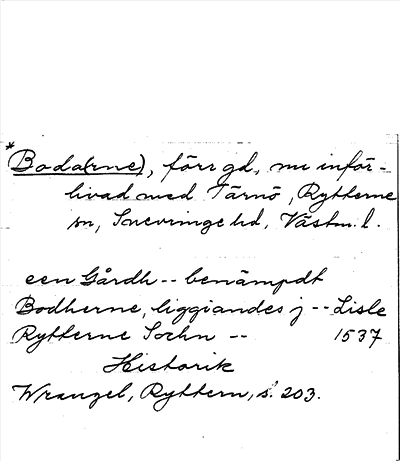 *Boda(rne), förr gd, nu inför-
livad med Tärnö, Rytterne
sn, Snevringe hd, Västm. l.
een Gårdh -- benämpdt
Bodherne, liggiandes j -- Lisle
Rytterne Sochn -- 1537
Historik
Wrangel, Ryttern, s. 203.